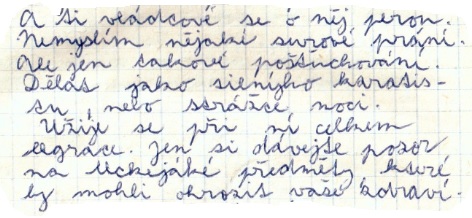 A ti vládcové se o něj perou.
Nemyslím nějaké surové praní.
Ale jen takové pošťuchování.
Děláš jako silnýho karatis-
tu, nebo strážce noci.
Užije se při ní celkem
legrace. Jen si dávejte pozor
na všelijaké předměty, které
by mohli ohrozit vaše zdraví.